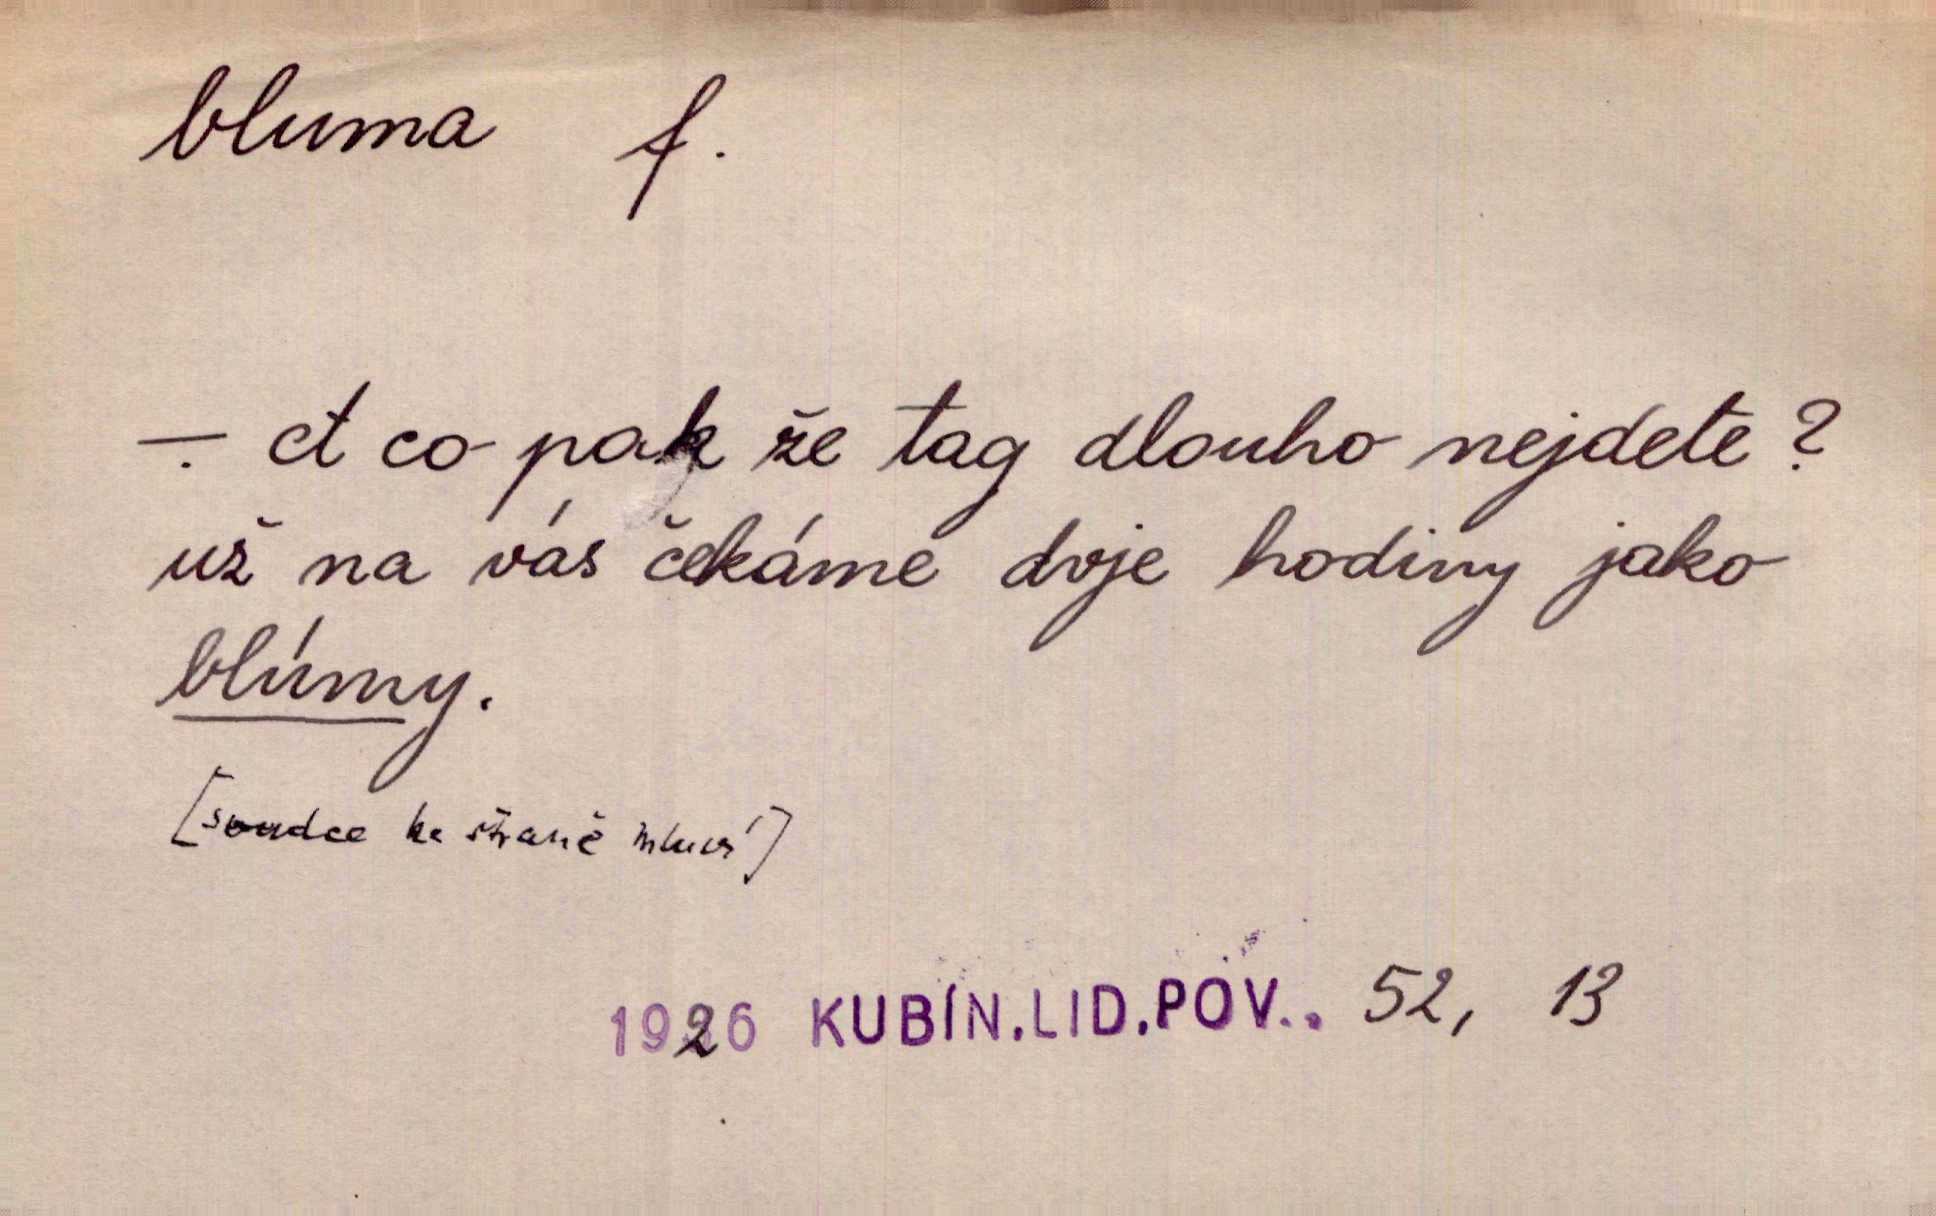 bluma f.
— . A co pak že tag dlouho nejdete?
už na vás čekáme dvje hodiny jako
blúmy.
[soudce ke straně mluví]
1926 KUBÍN.LID.POV.. 52, 13